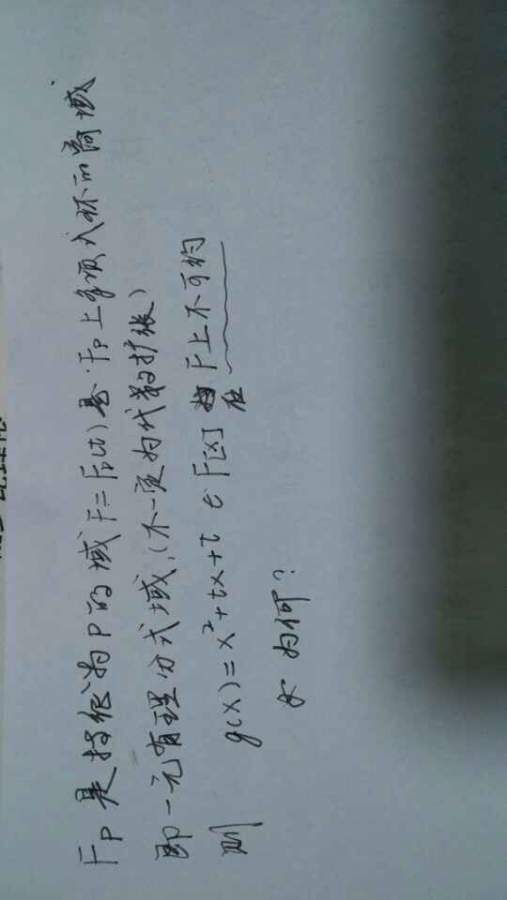 Fp 是特征为 P 的域 F=Fp(t) 是 Fp 上多项式环的商域
即一元有理分式域,(不一定为代数扩张)
则 g(x)=x²+tx+t ∈ F[x] 在 F 上不可约
为何?